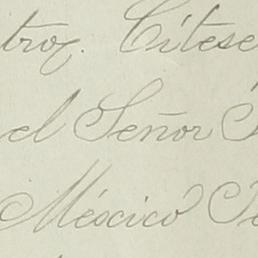 trox. Cítese
el Señor
México